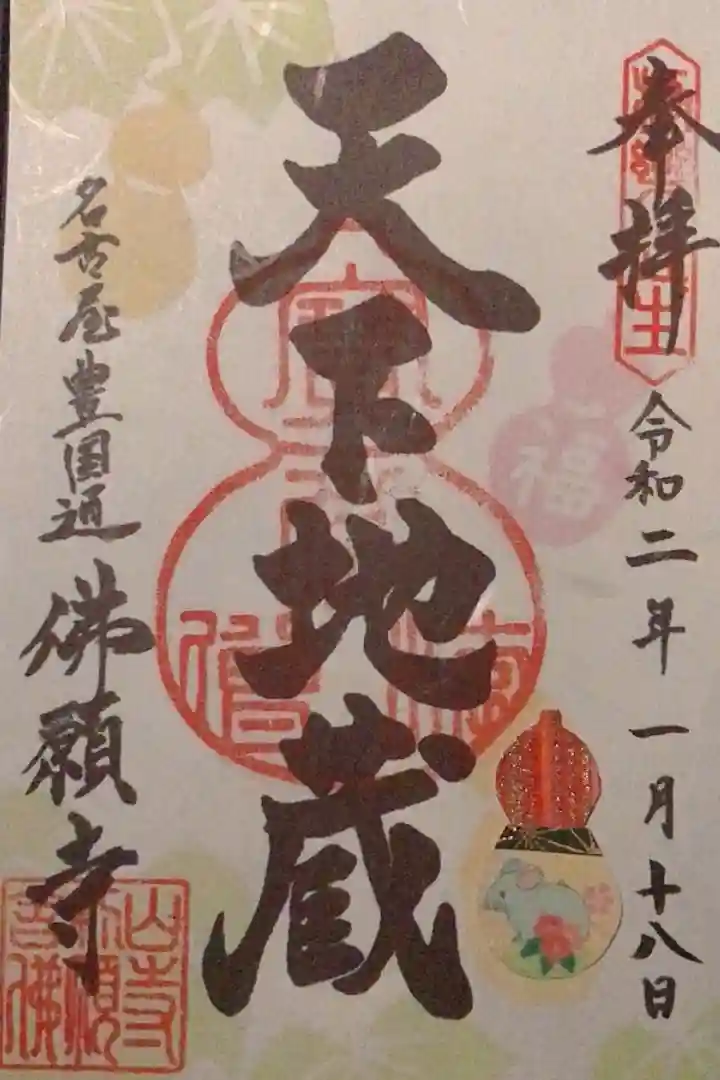 奉拝
令和二年一月十八日
天下地蔵
福
名古屋豊国通
佛願寺